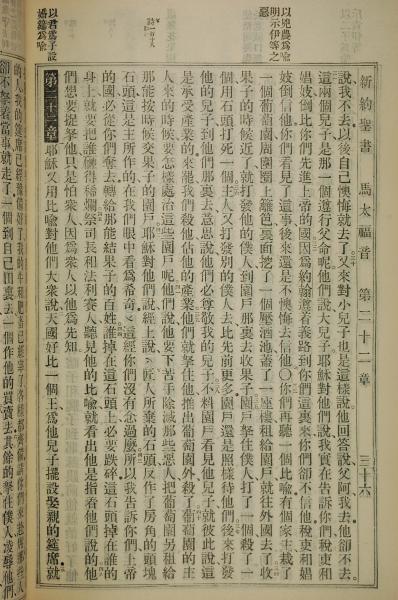 新約聖書 馬太福音 第二十一章 三十六
說我不去以後自己懊悔就去了又來對小兒子也是這樣說他回答說父阿我去他卻不去
這兩個兒子是那一個遵行父命呢他們說大兒子耶穌對他們說我實在告訴你們稅吏和
娼妓倒比你們先進上帝的國因為約翰遵着義路到你們這裏來你們卻不信他稅吏和娼
妓倒信他你們看見了這事後來還是不懊悔去信他〇你們再聽一個比喻有個家主栽了
一個葡萄園周圍圈上籬笆裏面挖了一個壓酒池蓋了一座樓租給園戶就往外國去了收
果子的時候近了就打發他的僕人到園戶那裏去收果子園戶拏住僕人打了一個殺了一
個用石頭打死一個主人又打發別的僕人去比先前更多園戶還是照樣待他們後來打發
他的兒子到他們那裏去意思說他們必尊敬我的兒子不料園戶看見他兒子就彼此說這
是承受產業的來罷我們殺他佔他的產業他們就拏住他推出葡萄園外殺了葡萄園的主
人來的時候要怎樣處治這些園戶呢他們說他要下苦手除滅那些惡人把葡萄園另租給
那能按時候交果子的園戶耶穌對他們說經上說匠人所棄的石頭反作了房角的頭塊
石頭這是主所作的在我們眼中看為希奇這經你們沒有念過麼所以我告訴你們上帝
的國必從你們奪去轉給那能結果子的百姓誰掉在這石頭上必要跌碎這石頭掉在誰的
身上就要把誰砸得稀爛祭司長和法利賽人聽見他的比喻就看出他是指着他們說的他
們想要捉拏他只是怕眾人因為眾人以他為先知
第二十二章 耶穌又用比喻對他們大眾說天國好比一個王為他兒子擺設娶親的筵席就
的人我的筵席已經預備好了我的牛和肥畜已經宰了各樣都齊備請你們來赴
卻不拏着當事就走了一個到自己田裏去一個作他的買賣去其餘的拏住僕人凌辱他們
以兇農為喻
明示伊等之
惡
以君為子設
婚筵為喻